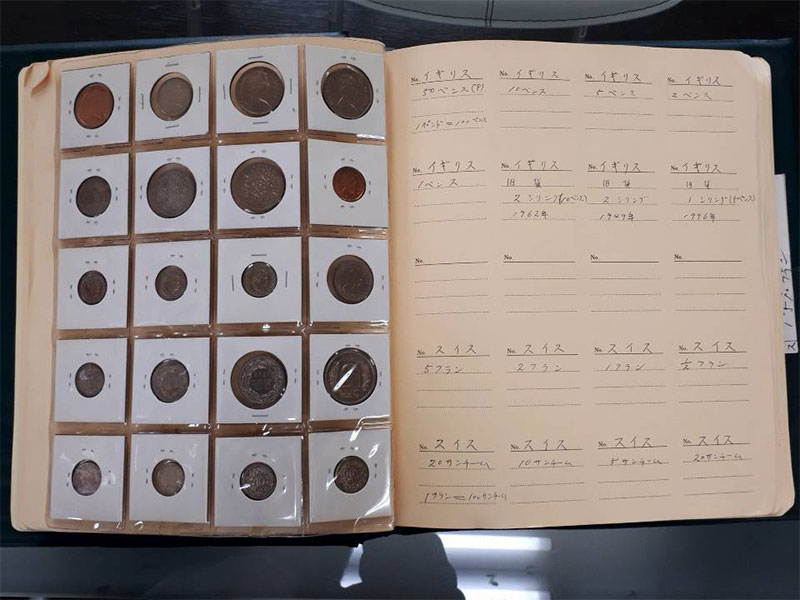 No. イギリス
50ペンス(P)
1ポンド=100ペンス
No. イギリス
10ペンス
No. イギリス
5ペンス
No. イギリス
2ペンス
No. イギリス
1ペンス
No. イギリス
旧貨
2シリング(10ペンス)
1962年
No. イギリス
旧貨
2シリング
1949年
No. イギリス
旧貨
1シリング(5ペンス)
No.
No.
No.
No.
No. スイス
5フラン
No. スイス
2フラン
No. スイス
1フラン
No. スイス
1/2フラン
No. スイス
20サンチーム
1フラン=100サンチーム
No. スイス
10サンチーム
No. スイス
5サンチーム
No. スイス
20サンチーム